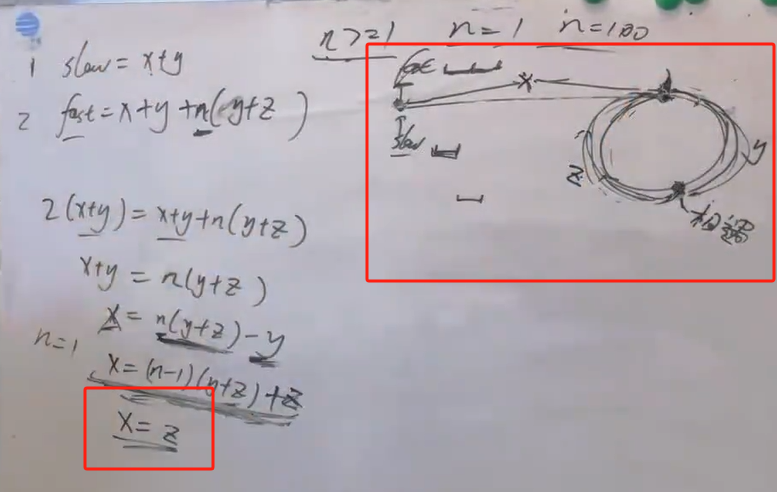 n>=1 n=1 n=100
1 slow = x+y
2 fast = x+y+n(y+z)
2(x+y) = x+y+n(y+z)
x+y = n(y+z)
x = n(y+z)-y
n=1
x=(n-1)(y+z)+z
x=z
x
slow
y
z
相遇